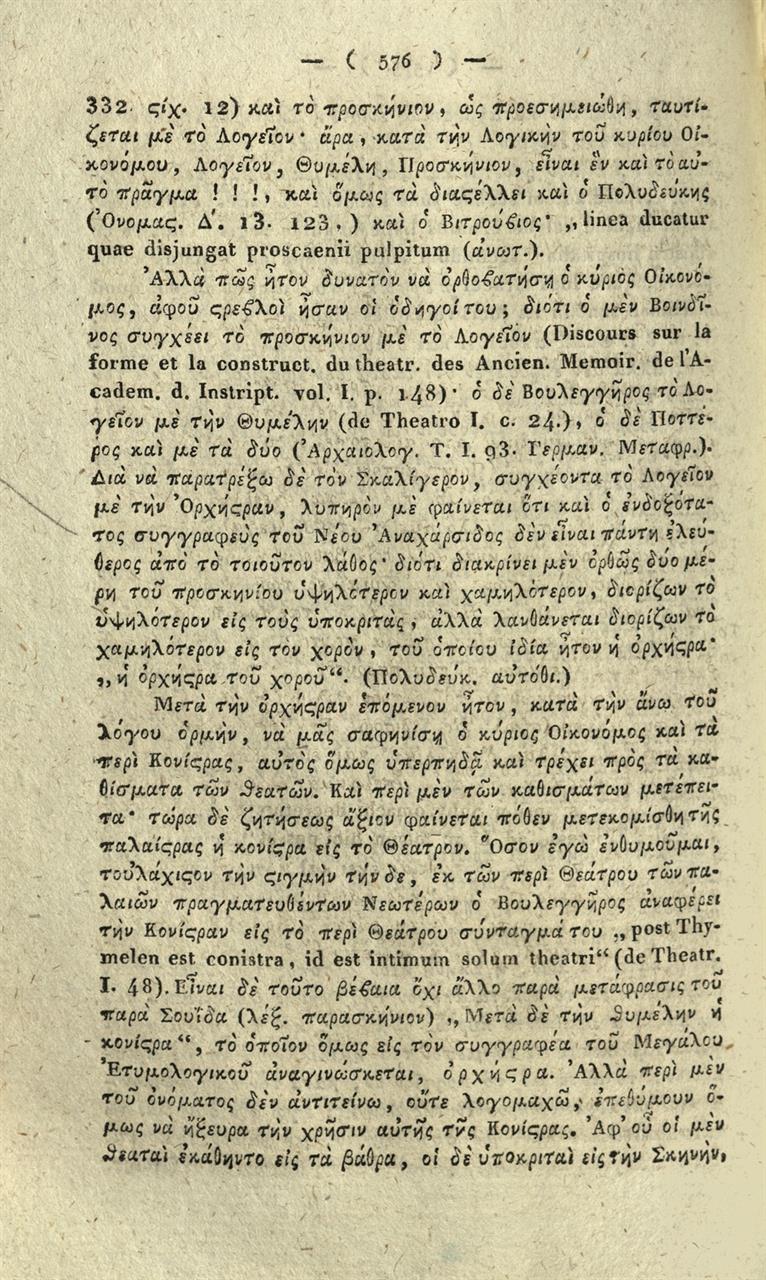 — ( 576 ) —
332. ϛίχ. 12) καὶ τὸ προσκήνιον, ὡς προεσημειώθη, ταυτί-
ζεται μὲ τὸ Λογεῖον· ἄρα, κατὰ τὴν Λογικὴν τοῦ κυρίου Οἰ-
κονόμου, Λογεῖον, Θυμέλη, Προσκήνιον, εἶναι ἓν καὶ τὸ αὐ-
τὸ πρᾶγμα ! ! !, καὶ ὅμως τὰ διαϛέλλει καὶ ὁ Πολυδεύκης
(Ὀνομαϛ. Δ΄. 13. 123.) καὶ ὁ Βιτρούϐιος· „linea ducatur
quae disjungat proscaenii pulpitum (ἀνωτ.).
Ἀλλὰ πῶς ἦτον δυνατὸν νὰ ὀρθοϐατήσῃ ὁ κύριὸς Οἰκονό-
μος, ἀφοῦ ϛρεϐλοὶ ἦσαν οἱ ὁδηγοί του; διότι ὁ μὲν Βοινδῖ-
νος συγχέει τὸ προσκήνιον μὲ τὸ Λογεῖον (Discours sur la
forme et la construct. du theatr. des Ancien. Memoir. de l'A-
cadem. d. Instript. vol. I. p. 148)· ὁ δὲ Βουλεγγῆρος τὸ Λο-
γεῖον μὲ τὴν Θυμέλην (de Theatro I. c. 24.), ὁ δὲ Ποττέ-
ρος καὶ μὲ τὰ δύο (Ἀρχαιολογ. Τ. Ι. 93. Γερμαν. Μεταφρ.).
Διὰ νὰ παρατρέξω δὲ τὸν Σκαλίγερον, συγχέοντα τὸ Λογεῖον
μὲ τὴν Ὀρχήϛραν, λυπηρὸν μὲ φαίνεται ὅτι καὶ ὁ ἐνδοξότα-
τος συγγραφεὺς τοῦ Νέου Ἀναχάρσιδος δὲν εἶναι πάντη ἐλεύ-
θερος ἀπὸ τὸ τοιοῦτον λάθος· διότι διακρίνει μὲν ὀρθῶς δύο μέ-
ρη τοῦ προσκηνίου ὑψηλότερον καὶ χαμηλότερον, διορίζων τὸ
ὑψηλότερον εἰς τοὺς ὑποκριτὰς, ἀλλὰ λανθάνεται διορίζων τὸ
χαμηλότερον εἰς τὸν χορὸν, τοῦ ὁποίου ἰδία ἦτον ἡ ὀρχήϛρα·
„ἡ ὀρχήϛρα τοῦ χοροῦ“. (Πολυδεύκ. αὐτόθι.)
Μετὰ τὴν ὀρχήϛραν ἑπόμενον ἦτον, κατὰ τὴν ἄνω τοῦ
λόγου ὁρμὴν, νὰ μᾶς σαφηνίσῃ ὁ κύριος Οἰκονόμος καὶ τὰ
περὶ Κονίϛρας, αὐτὸς ὅμως ὑπερπηδᾷ καὶ τρέχει πρὸς τὰ κα-
θίσματα τῶν θεατῶν. Καὶ περὶ μὲν τῶν καθισμάτων μετέπει-
τα· τώρα δὲ ζητήσεως ἄξιον φαίνεται πόθεν μετεκομίσθη τῆς
παλαίϛρας ἡ κονίϛρα εἰς τὸ Θέατρον. Ὅσον ἐγὼ ἐνθυμοῦμαι,
τοὐλάχιϛον τὴν ϛιγμὴν τήνδε, ἐκ τῶν περὶ Θεάτρου τῶν πα-
λαιῶν πραγματευθέντων Νεωτέρων ὁ Βουλεγγῆρος ἀναφέρει
τὴν Κονίϛραν εἰς τὸ περὶ Θεάτρου σύνταγμά του „post Thy-
melen est conistra, id est intimum solum theatri“ (de Theatr.
I. 48). Εἶναι δὲ τοῦτο βέβαια ὄχι ἄλλο παρὰ μετάφρασις τοῦ
παρὰ Σουΐδα (λέξ. παρασκήνιον) „Μετὰ δὲ τὴν θυμέλην ἡ
κονίϛρα“, τὸ ὁποῖον ὅμως εἰς τὸν συγγραφέα τοῦ Μεγάλου
Ἐτυμολογικοῦ ἀναγινώσκεται, ὀρχήϛρα. Ἀλλὰ περὶ μὲν
τοῦ ὀνόματος δὲν ἀντιτείνω, οὔτε λογομαχῶ, ἐπεθύμουν ὅ-
μως νὰ ἤξευρα τὴν χρῆσιν αὐτῆς τῆς Κονίϛρας. Ἀφ' οὗ οἱ μὲν
θεαταὶ ἐκάθηντο εἰς τὰ βάθρα, οἱ δὲ ὑποκριταὶ εἰς τὴν Σκηνὴν,